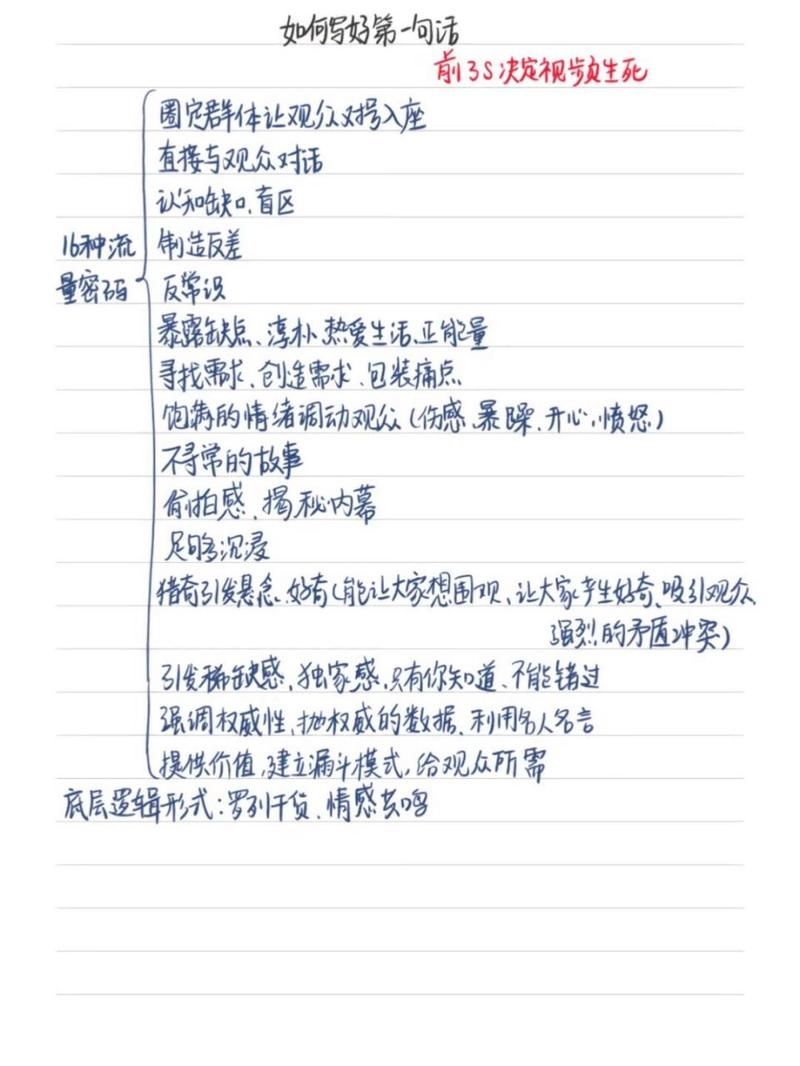 如何写好第一句话
前3S决定视频生死
圈定群体让观众对号入座
直接与观众对话
认知缺口、盲区
16种流量密码
制造反差
反常识
暴露缺点、淳朴、热爱生活、正能量
寻找需求、创造需求、包装痛点
饱满的情绪调动观众(伤感、暴躁、开心、愤怒)
不寻常的故事
偷拍感、揭秘内幕
足够沉浸
猎奇引发悬念、好奇(能让大家想围观、让大家产生好奇、吸引观众
强烈的矛盾冲突)
引发稀缺感、独家感、只有你知道、不能错过
强调权威性、抛权威的数据、利用名人名言
提供价值、建立漏斗模式、给观众所需
底层逻辑形式:罗列干货、情感共鸣